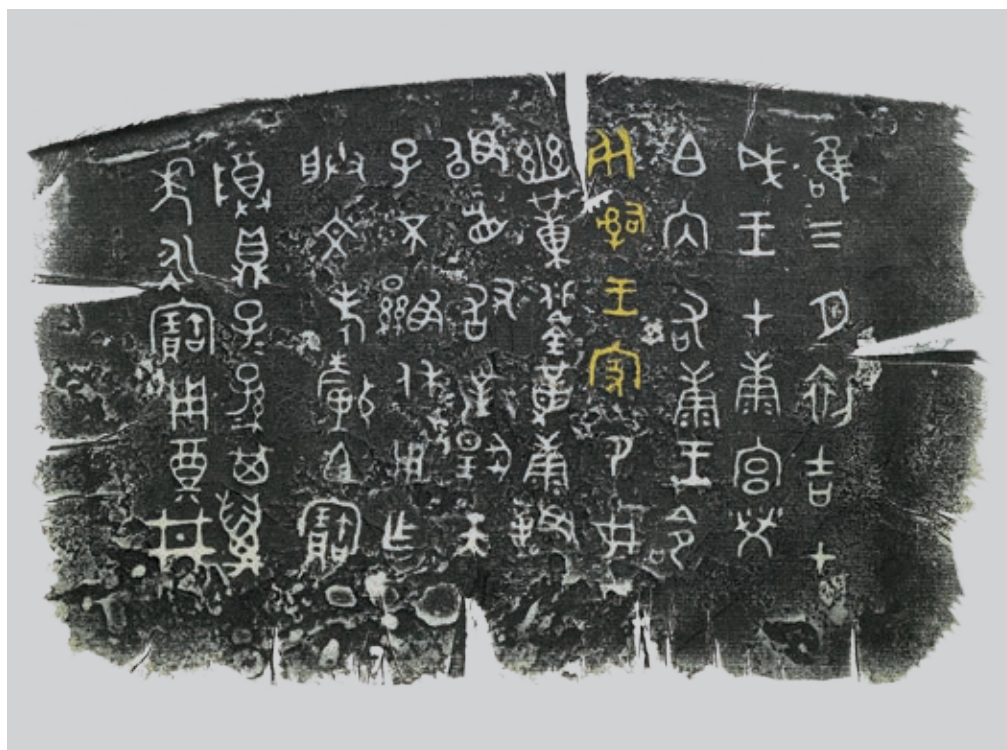 唯三月初吉甲
戌王才康宮𤇾
白内右康王命
死𤔲王家命女
幽黃鋚革康拜
𩒨首敢對揚天
子不顯休用乍
朕文考釐白寶
尊鼎子孫其萬
年永寶用奠井